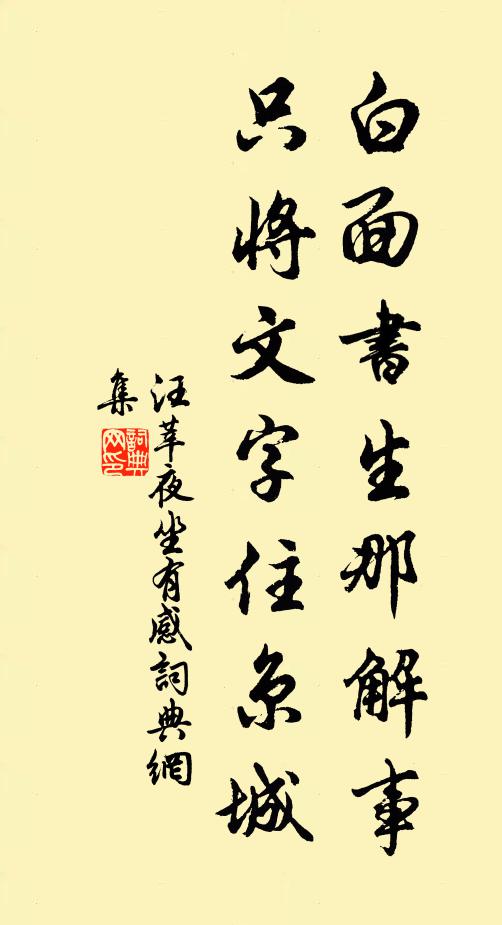 白面書生那解事
只將文字住京城
汪莘夜坐有感詞典網
集
詞典網印